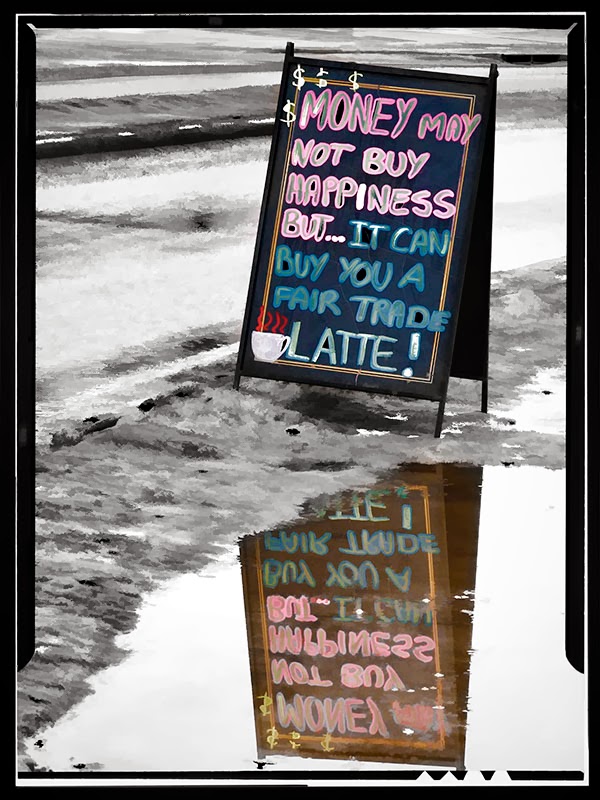 $ $ $
$ MONEY MAY
NOT BUY
HAPPINESS
BUT... IT CAN
BUY YOU A
FAIR TRADE
LATTE!